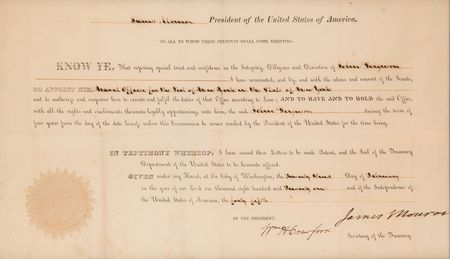 James Monroe President of the United States of America,
TO ALL TO WHOM THESE PRESENTS SHALL COME, GREETING:
KNOW YE, That reposing special trust and confidence in the Integrity, Diligence and Discretion of John Ferguson
I have nominated, and by, and with the advice and consent of the Senate,
DO APPOINT HIM, Naval Officer for the Port of New York in the State of New York
and do authorize and empower him to execute and fulfil the duties of that Office according to Law; AND TO HAVE AND TO HOLD the said Office,
with all the rights and emoluments thereunto legally appertaining, unto him, the said John Ferguson during the term of
four years from the day of the date hereof, unless this Commission be sooner revoked by the President of the United States for the time being.
IN TESTIMONY WHEREOF, I have caused these Letters to be made Patent, and the Seal of the Treasury
Department of the United States to be hereunto affixed.
GIVEN under my Hand, at the City of Washington, the Day of
in the year of our Lord one thousand eight hundred and Twenty one and of the Independence of
the United States of America, the forty fifth.
BY THE PRESIDENT,
James Monroe
Wm H Crawford
Secretary of the Treasury.